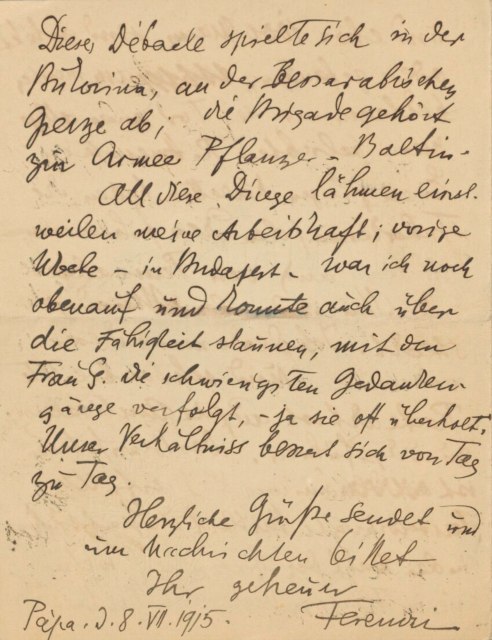 Diese Débacle spielte sich in der
Bukovina, an der Bessarabischen
Grenze ab; die Brigade gehört
zur Armee Pflanzer - Baltin.
All diese Dinge lähmen einst-
weilen meine Arbeitskraft; vorige
Woche - in Budapest - war ich noch
obenauf und konnte auch über
die Fähigkeit staunen, mit der
Frau G. die schwierigsten Gedanken-
gänge verfolgt, - ja sie oft überholt.
Unser Verhältniss bessert sich von Tag
zu Tag.
Herzliche Grüße sendet und
um Nachrichten bittet
Ihr getreuer
Ferenczi
Pápa. d. 8. VII. 1915.